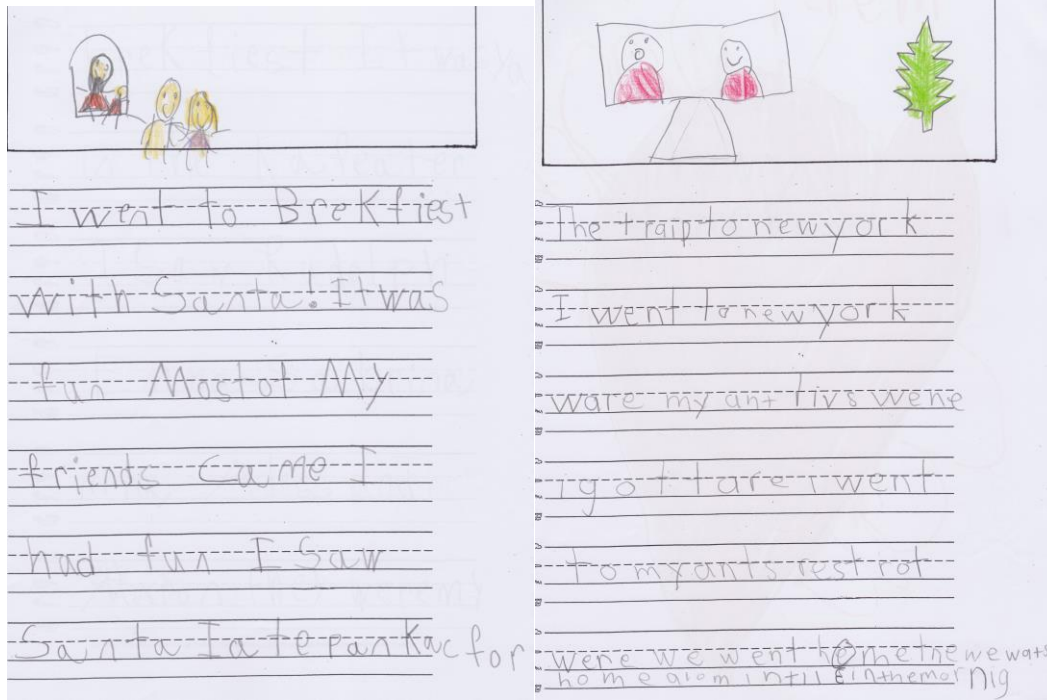 I went to Brekfiest
with Santa! It was
fun Most of My
friends Came I
had fun I Saw
Santa I ate pankac for
The traip to new york
I went to new york
ware my ant livs wene
i got tare i went
to my ants rest rot
wene we went home thewe wats
home alom intil 6 in the mornig